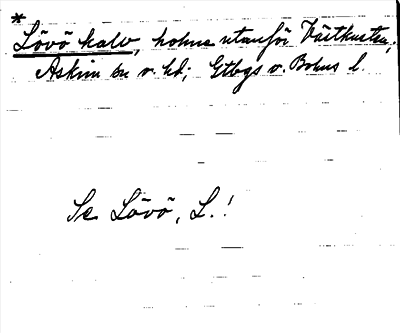 *
Lövö kalv, holme utanför Västkusten;
Askim sn o. hd; Gtbgs o. Bohus l.
Se Lövö, L.!